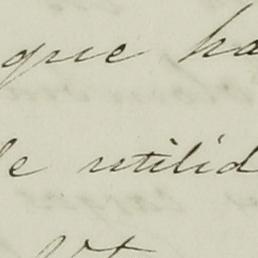 que ha
de utilid